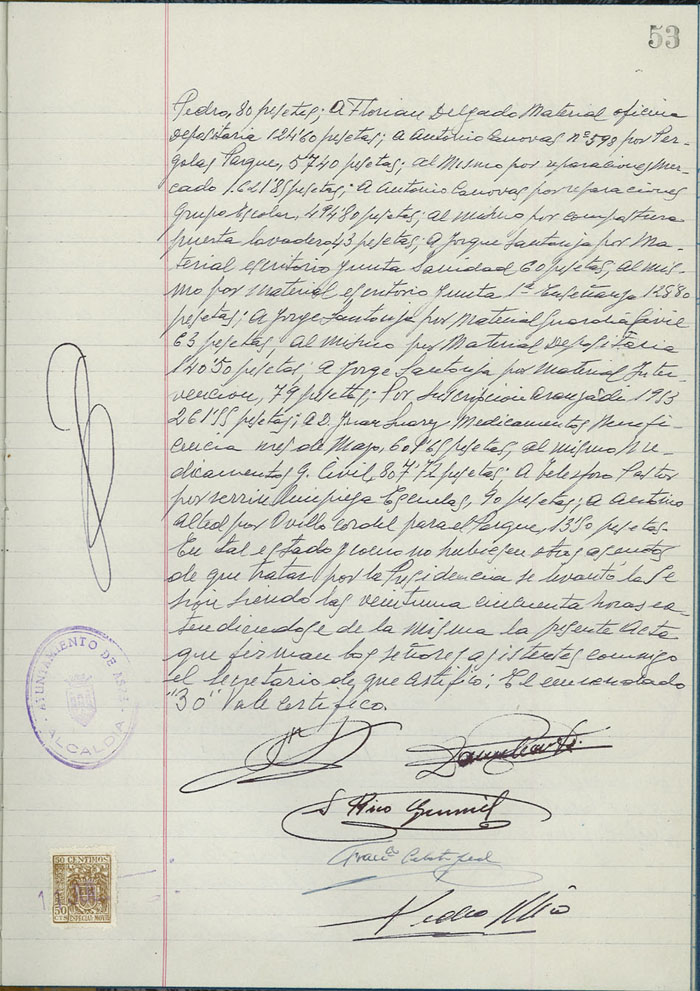 53
Pedro, 80 pesetas; A Florian Delgado Material oficina
Depositaria 124'60 pesetas; a Antonio Canovas nº 598 por Per-
golas Parque, 57'40 pesetas; al Mismo por reparaciones Mer-
cado 1.621'85 pesetas; A Antonio Canovas por reparaciones
Grupo Escolar, 494'80 pesetas; al mismo por compostura
puerta lavadero, 43 pesetas; a Jorge Santonja por Ma-
terial escritorio Junta Sanidad 60 pesetas, al mis-
mo por material escritorio Junta 1ª Enseñanza 128'80
pesetas; a Jorge Santonja por Material Guardia Civil
63 pesetas, al mismo por Material Depositaria
140'50 pesetas; A Jorge Santonja por Material Inter-
vencion, 79 pesetas; Por Suscripcion Aranzadi 1953
261'55 pesetas; a D. Juan Suarez Medicamentos Benefi-
cencia mes de Mayo, 601'65 pesetas, al mismo Me-
dicamentos G. Civil, 807'72 pesetas; A Telesforo Pastor
por servicio limpieza Escuelas, 90 pesetas; a Antonio
Alted por Ovillo cordel para el Parque, 13'50 pesetas.
En tal estado y como no hubiesen otros asuntos
de que tratar por la Presidencia se levantó la Se-
sion siendo las veintiuna cincuenta horas ex-
tendiendose de la misma la presente Acta
que firman los señores asistentes conmigo
el Secretario de que certifico; El enmendado
"30" Vale Certifico.
Pedro
AYUNTAMIENTO DE
ALCALDIA
50 CENTIMOS
50 CTS ESPECIAL MOVIL